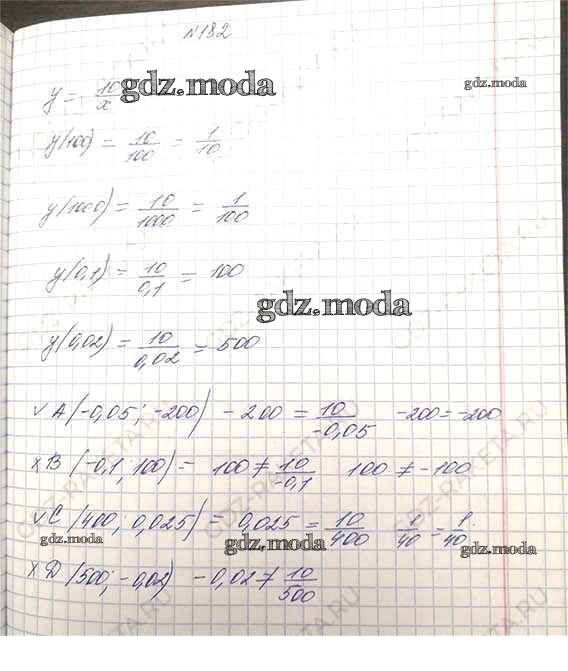 №182
y = 10/x gdz.moda
gdz.moda
y(100) = 10/100 = 1/10
y(1000) = 10/1000 = 1/100
y(0,1) = 10/0,1 = 100
gdz.moda
y(0,02) = 10/0,02 = 500
v A(-0,05; -200) -200 = 10/-0,05 -200 = -200
x B (-0,1; 100) = 100 ≠ 10/-0,1 100 ≠ -100
v C (400; 0,025) = 0,025 = 10/400 1/40 = 1/40.
gdz.moda gdz.moda gdz.moda
x D (500; -0,02) -0,02 ≠ 10/500
GDZ-RAKETA.RU
GDZ-RAKETA.RU